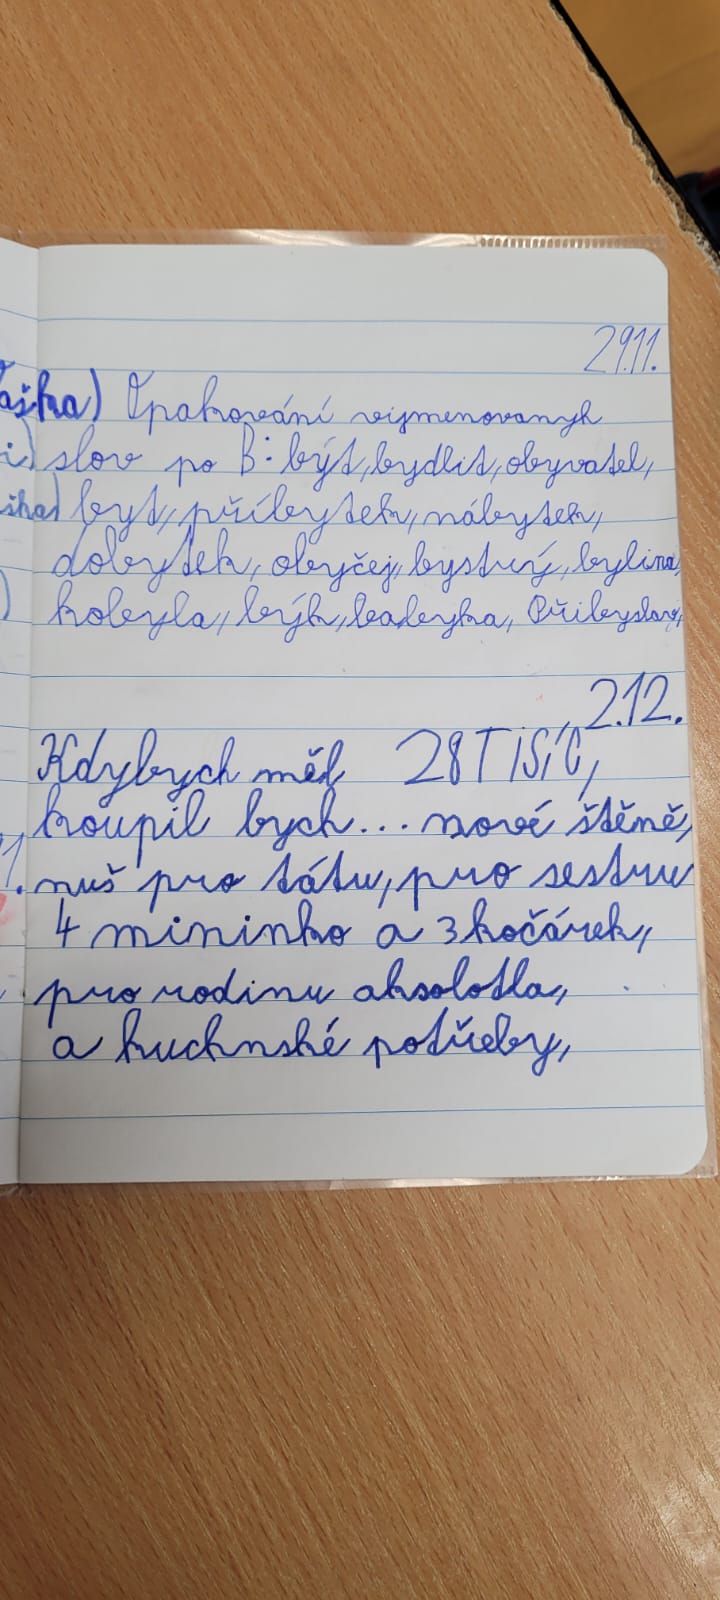 29.11.
aška) Opakování vijmenovanyh
i) slov po B: být, bydlit, obyvatel,
iha) byt, příbytek, nábytek,
dobytek, obyčej, bystrý, bylina,
) kobyla, býk, babyka, Přibyslav,
2.12.
Kdybych měl 28 TiSíC,
koupil bych... nové štěně,
1. nuš pro tátu, pro sestru
4 mininko a 3 kočárek,
pro rodinu aksolotla,
a kuchnské potřeby,